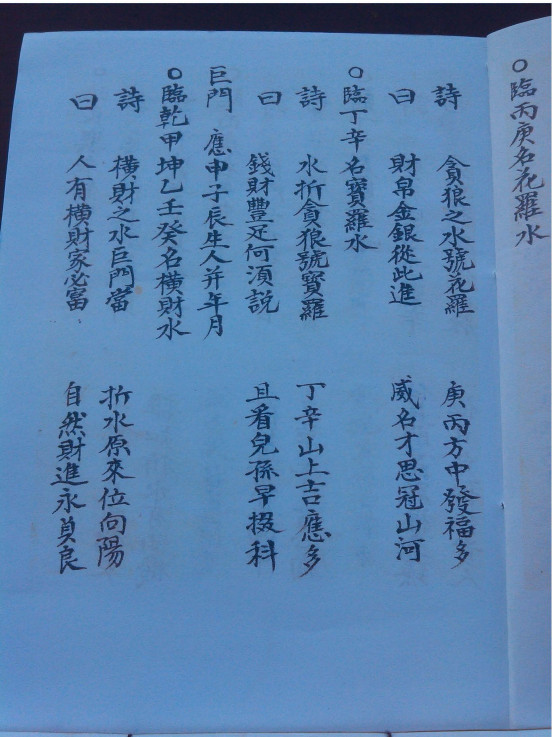 ○臨丙庚名花羅水
詩 貪狼之水號花羅 庚丙方中發福多
曰 財帛金銀從此進 威名才思冠山河
○臨丁辛名寶羅水
詩 水折貪狼號寳羅 丁辛山上吉應多
曰 錢財豐足何湏説 且看兒孫早掇科
巨門 應申子辰生人并年月
○臨乾甲坤乙壬癸名橫財水
詩 橫財之水巨門當 折水原來位向陽
曰 人有橫財家必富 自然財進永貞良